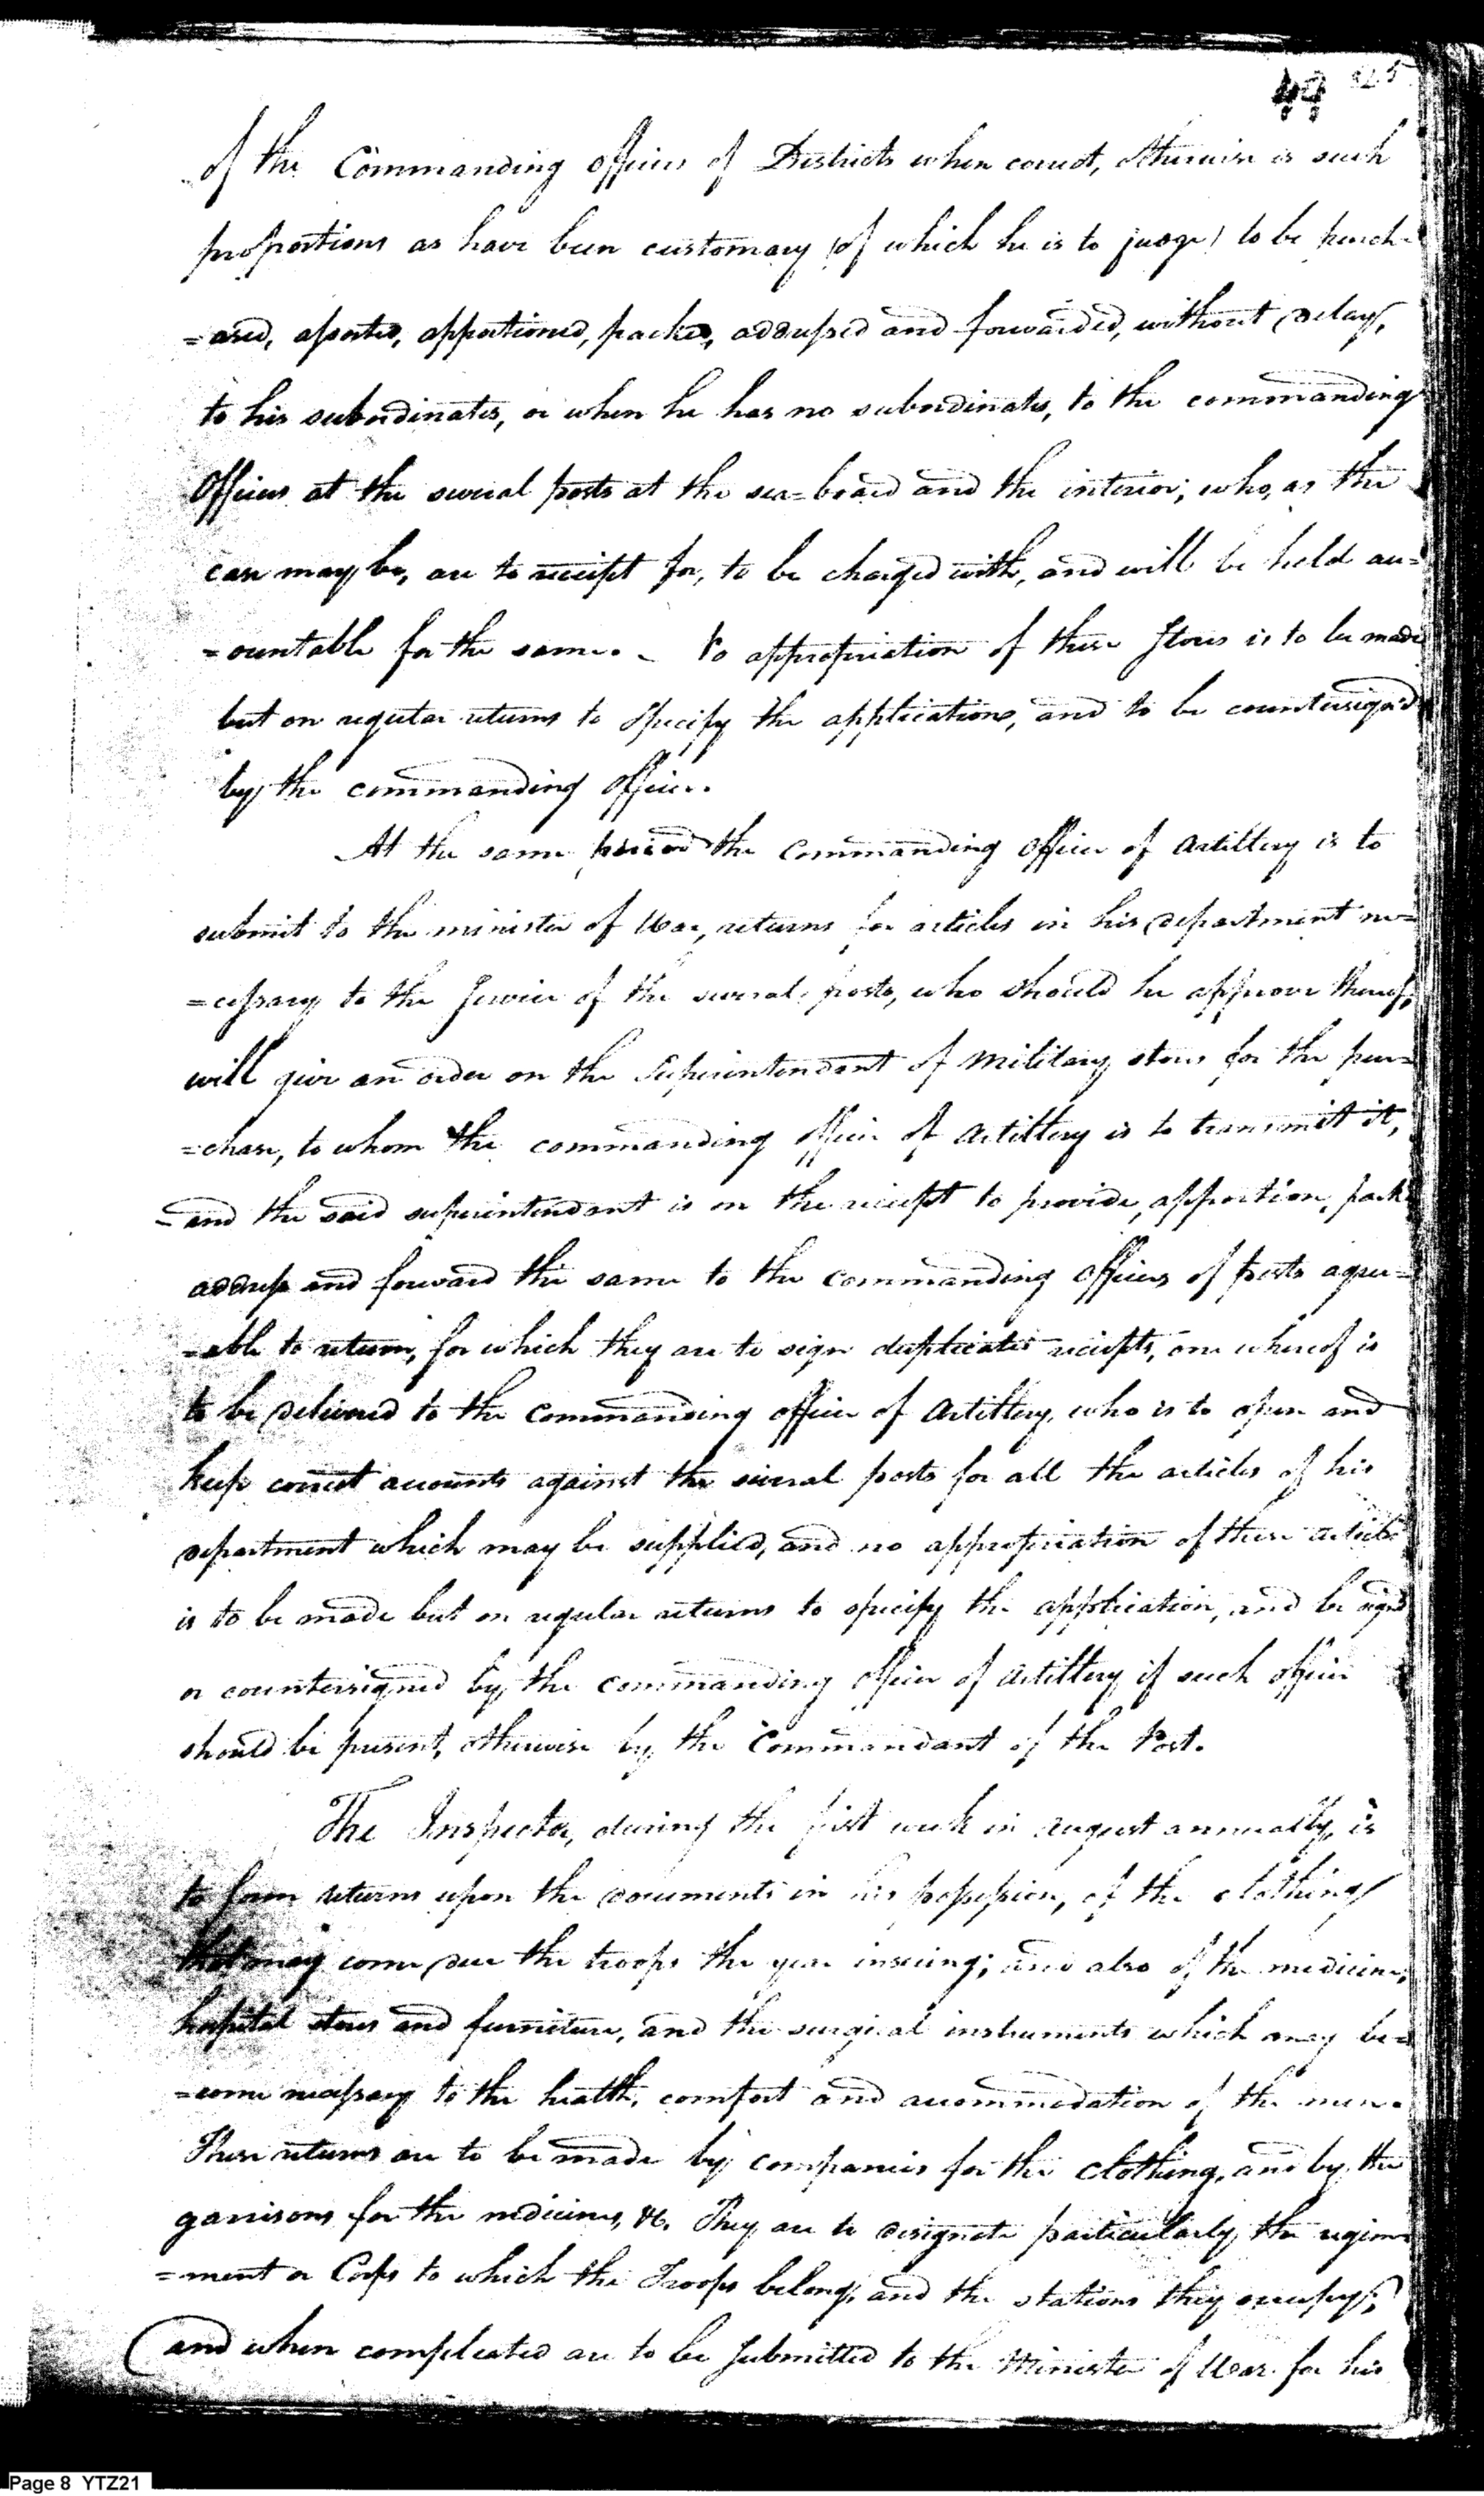 49 25
of the Commanding officers of Districts when correct, otherwise is such
proportions as have been customary (of which he is to judge) to be purch-
=ased, assorted, apportioned, packed, addressed and forwarded, without delay,
to his subordinates, or when he has no subordinates, to the commanding
Officers at the several posts at the sea=board and the interior; who, as the
case may be, are to receipt for, to be charged with, and will be held acc=
=ountable for the same. - No appropriation of these Stores is to be made
but on regular returns to Specify the applications, and to be countersign'd
by the commanding officer.
At the same period the Commanding Officer of Artillery is to
submit to the minister of War, returns for articles in his department ne=
=cessary to the Service of the several posts, who should he approve thereof,
will give an order on the Superintendant of Military stores for the pur=
=chase, to whom the commanding officer of Artillery is to transmit it,
-and the said superintendant is on the receipt to provide, apportion, pack
address and forward the same to the commanding officers of posts agree=
=able to return, for which they are to sign duplicate receipts, one whereof is
to be delivered to the Commanding officer of Artillery, who is to open and
keep correct accounts against the several posts for all the articles of his
department which may be supplied, and no appropriation of these articles
is to be made but on regular returns to specify the application, and be signd
or countersigned by the commanding officer of Artillery if such officer
should be present, otherwise by the Commandant of the Post.
The Inspector, during the first week in August annually, is
to form returns upon the documents in his possession, of the clothing
that may come due the troops the year insuing; and also of the medicine,
hospital stores and furniture, and the surgical instruments which may be=
=come necessary to the health, comfort and accommodation of the men.
These returns are to be made by companies for the clothing, and by the
garrisons for the medicines, &c. They are to designate particularly the regim=
=ment or Corps to which the Troops belong, and the stations they occupy;
and when compleated are to be Submitted to the Minister of War for his
Page 8 YTZ21